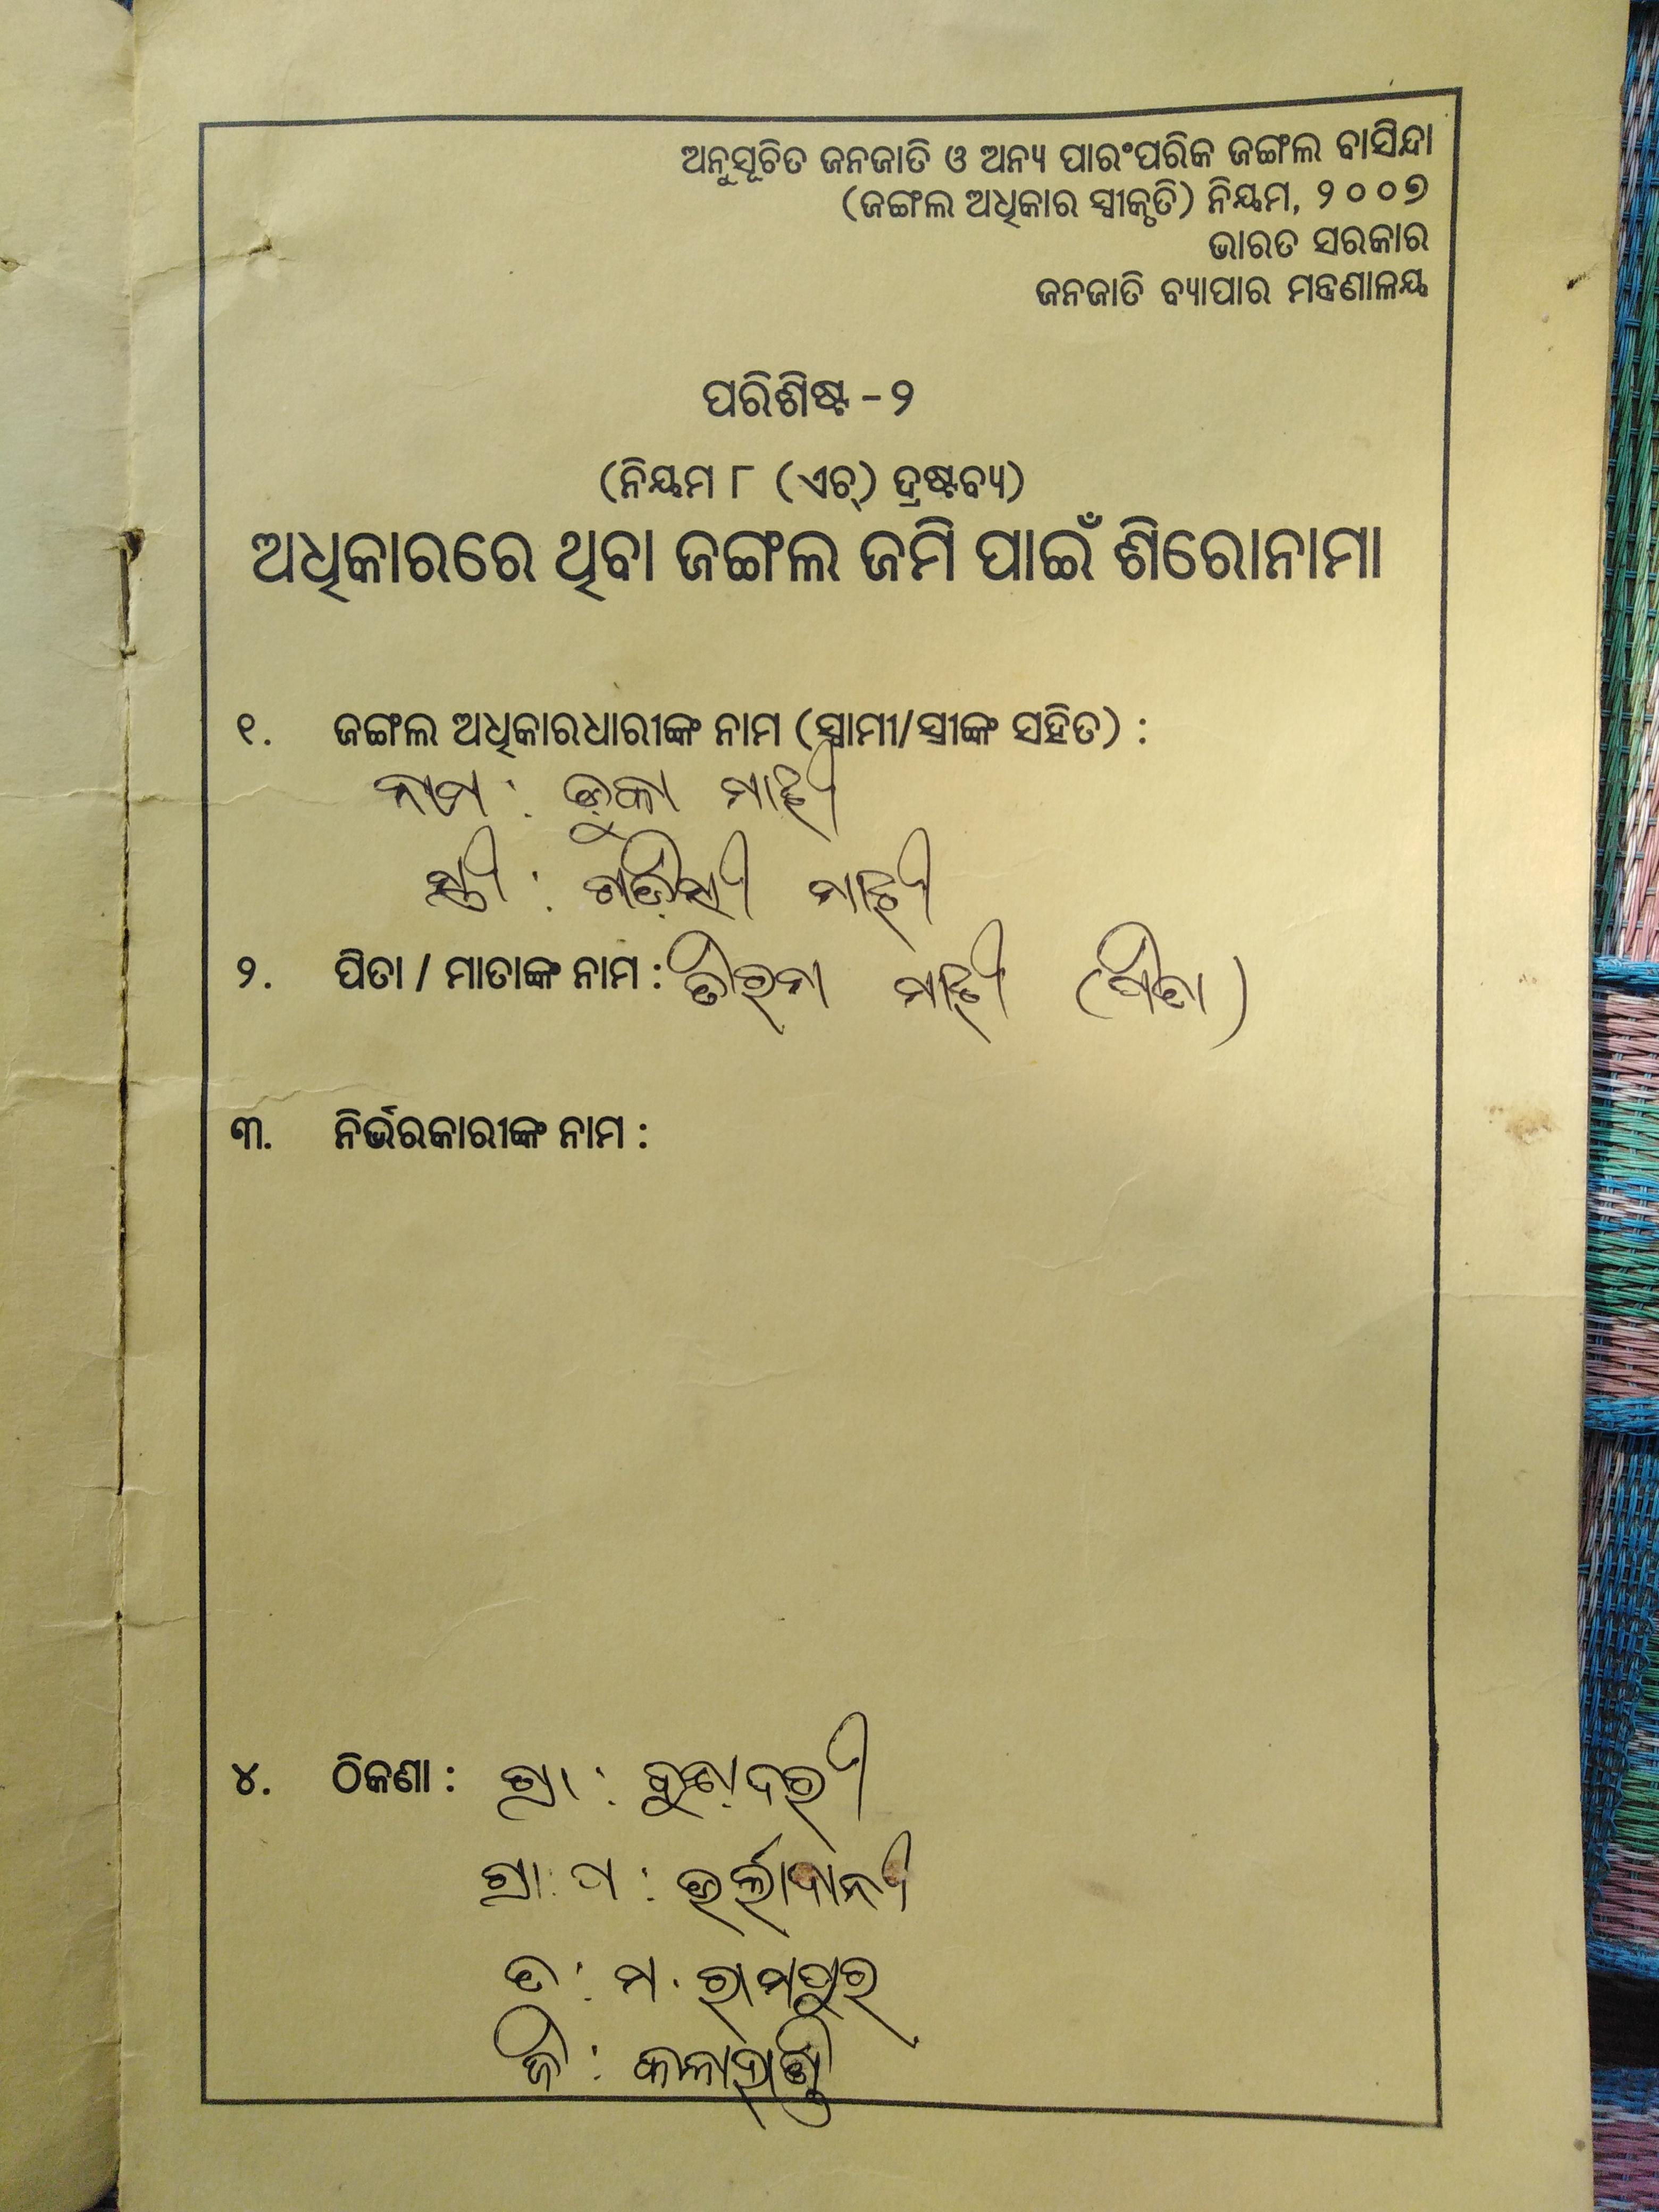 ଅନୁସୂଚିତ ଜନଜାତି ଓ ଅନ୍ୟ ପାରଂପରିକ ଜଙ୍ଗଲ ବାସିନ୍ଦା
(ଜଙ୍ଗଲ ଅଧିକାର ସ୍ୱୀକୃତି) ନିୟମ, ୨୦୦୭
ଭାରତ ସରକାର
ଜନଜାତି ବ୍ୟାପାର ମନ୍ତ୍ରଣାଳୟ
ପରିଶିଷ୍ଟ - ୨
(ନିୟମ ୮ (ଏଚ୍) ଦ୍ରଷ୍ଟବ୍ୟ)
ଅଧିକାରରେ ଥିବା ଜଙ୍ଗଲ ଜମି ପାଇଁ ଶିରୋନାମା
୧. ଜଙ୍ଗଲ ଅଧିକାରଧାରୀଙ୍କ ନାମ (ସ୍ୱାମୀ/ସ୍ତ୍ରୀଙ୍କ ସହିତ) :
ନାମ : ମାଝୀ
ସ୍ତ୍ରୀ : ମାଝୀ
୨. ପିତା / ମାତାଙ୍କ ନାମ : ମାଝୀ (ପିତା)
୩. ନିର୍ଭରକାରୀଙ୍କ ନାମ :
୪. ଠିକଣା : ଗ୍ରା :
ଗ୍ରା: ପ :
ତ : ମ. ରାମପୁର
ଜି : କଳାହାଣ୍ଡି